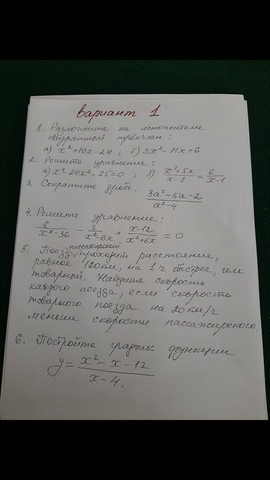 вариант 1
1. Разложите на множители
квадратный трёхчлен:
а) x² + 10x - 24 ; б) 3x² - 11x + 6
2. Решите уравнение:
а) x⁴ - 24x² - 25 = 0 ; б) (x² + 5x)/(x - 1) = 6/(x - 1)
3. Сократите дробь: (3a² - 5a - 2)/(a² - 4)
4. Решите уравнение:
6/(x² - 36) - 3/(x² - 6x) + (x - 12)/(x² + 6x) = 0
пассажирский
5. Поезд проходит расстояние,
равное 120 км, на 1 ч быстрее, чем
товарный. Найдите скорость
каждого поезда, если скорость
товарного поезда на 20 км/ч
меньше скорости пассажирского.
6. Постройте график функции
y = (x² - x - 12)/(x - 4)